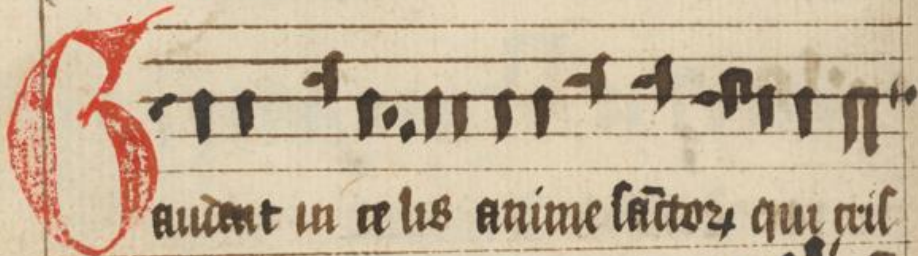 Gaudent in ce lis anime sāctoꝝ qui cris